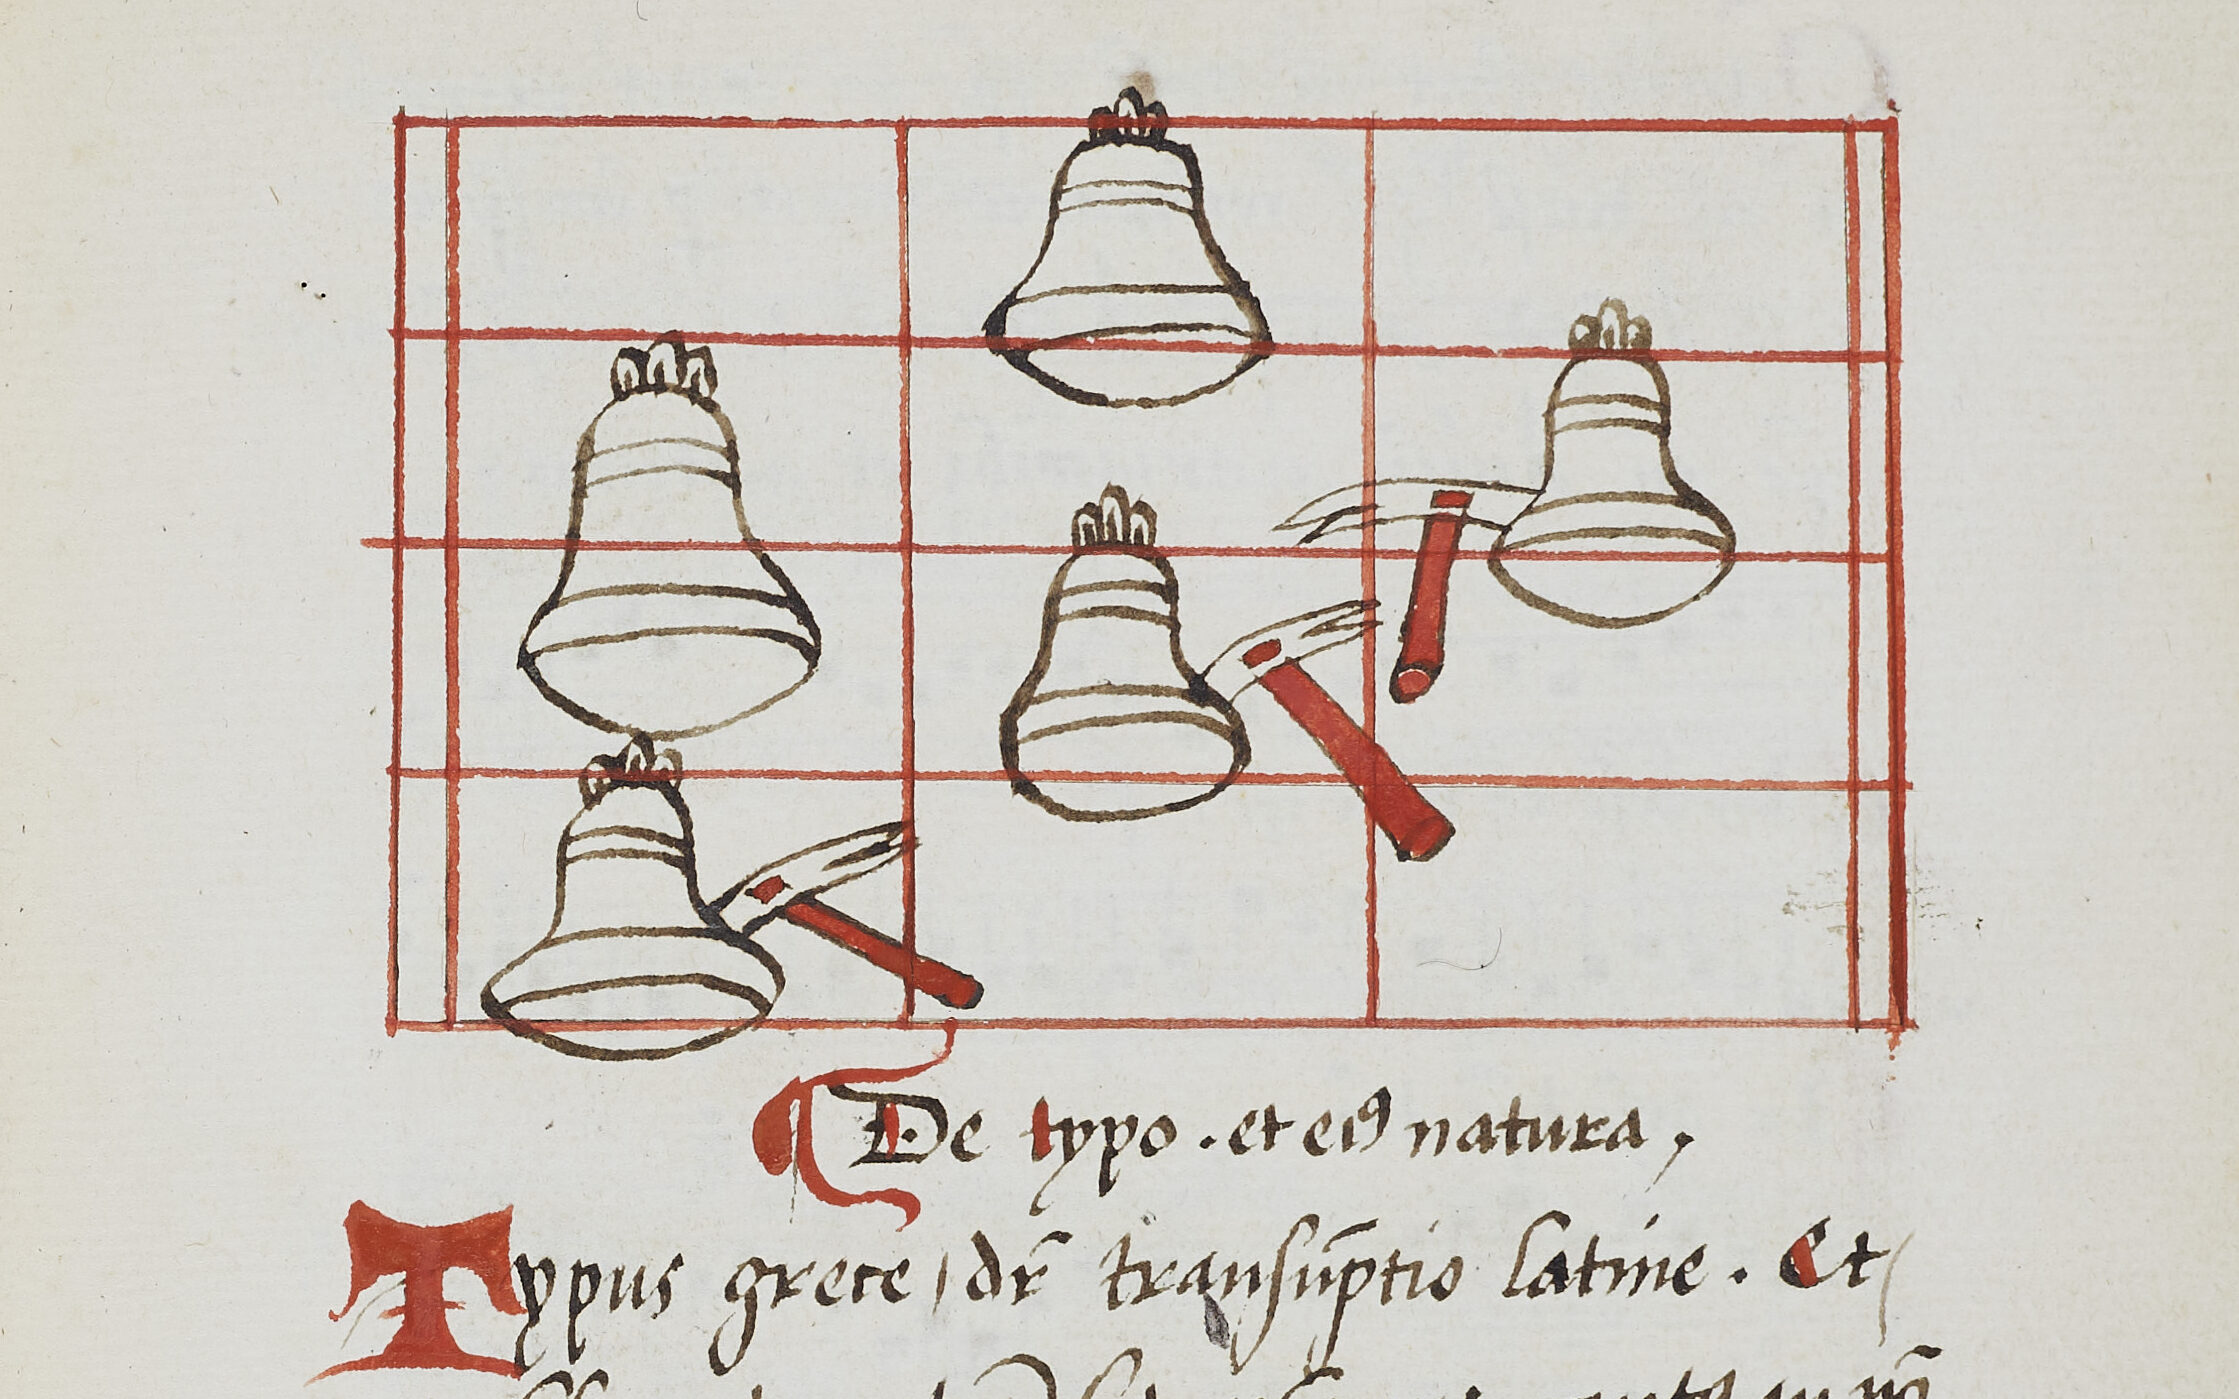 De typo . et eiꝰ natura ,
Typus grece / dr̄ transūptio latine . Et